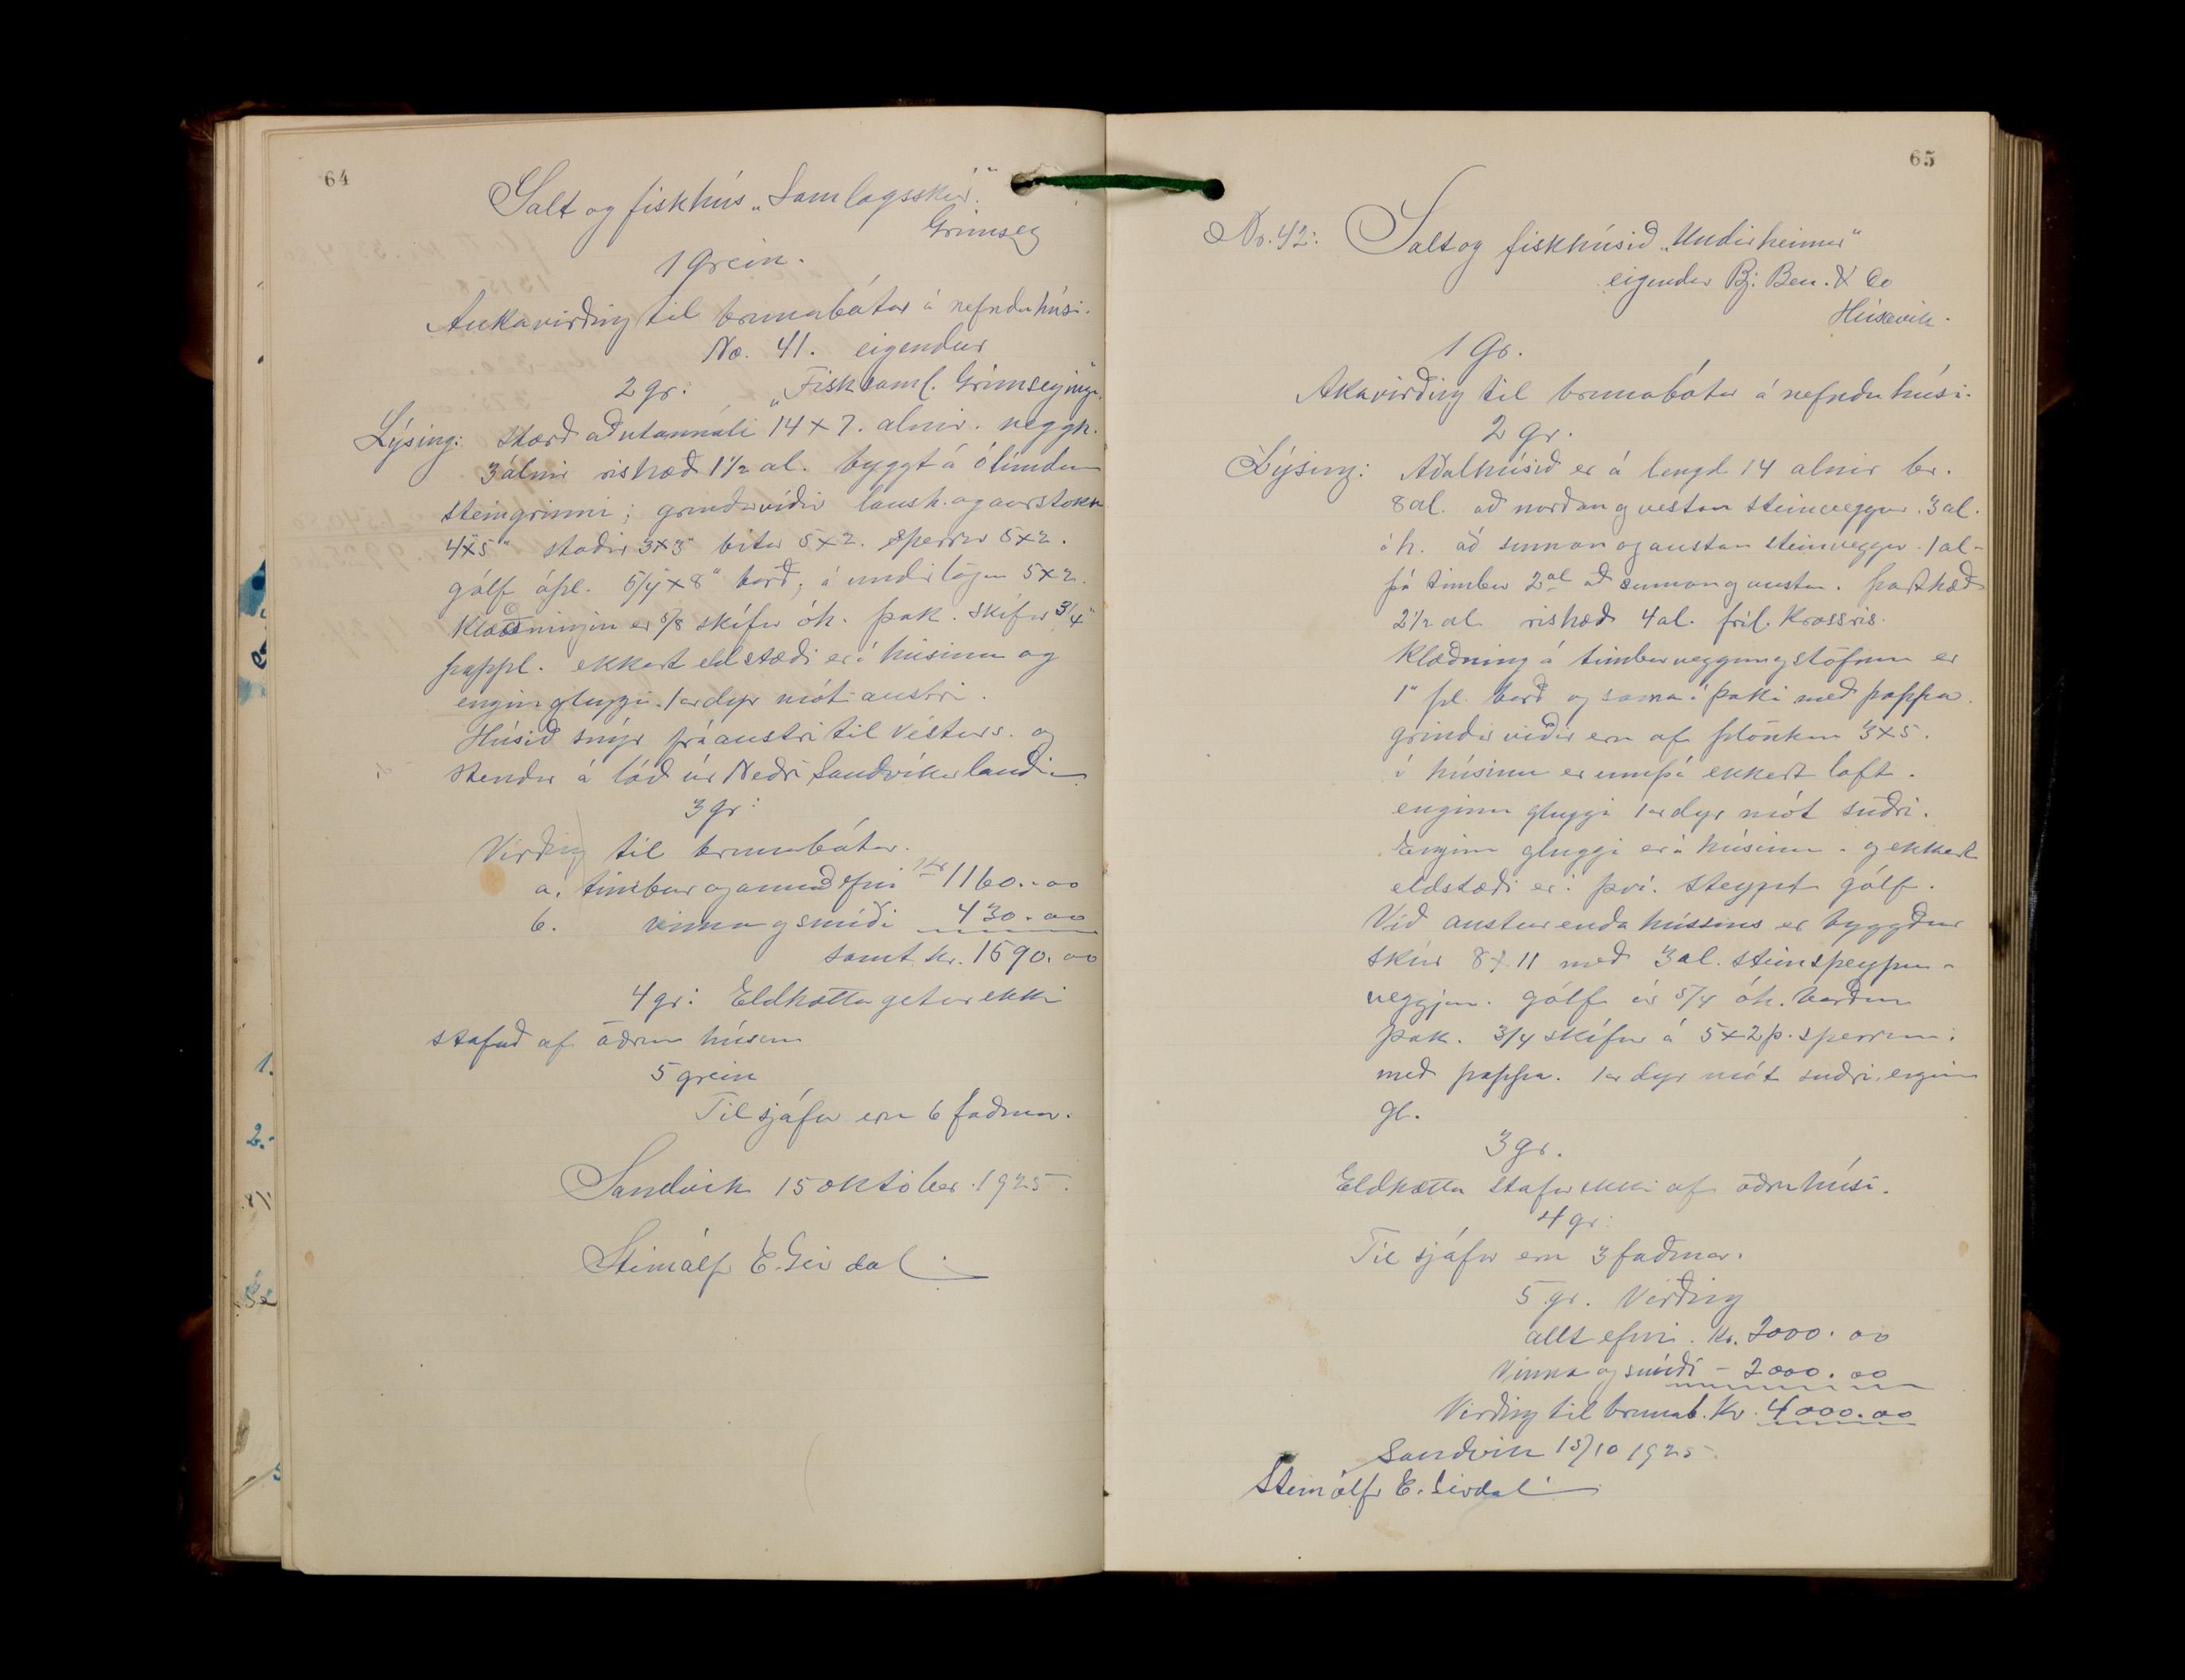 64
Salt og fiskhús „Samlagsskúr"
Grímsey
1 grein.
Aukavirðing til brunabóta á nefndu húsi.
No. 41. eigendur
2 gr: „Fisksaml. Grímseyinga"
Lýsing: Stærð að utanmáli 14 x 7. alnir. veggh.
3 álnir rishæð 1 1/2 al. byggt á ólímdum
steingrunni; grindarviðir laush. og aurstokkar
4"x5" stoðir 3x3" bitar 5x2. sperrur 5x2.
gólf ópl. 5/4 x 8" borð; á undirlögum 5x2.
Klæðningin er 5/8 skífur óh. þak. skífur 3/4"
pappl. ekkert eldstæði er í húsinu og
engin gluggi. 1ar dyr mót austri.
Húsið snýr frá austri til vesturs. og
stendur á lóð úr Neðri Sandvíkurlandi
3 gr:
Virðing til brunabóta.
a. timbur og annað efni kr 1160.00
b. vinna og smíði 430.00
samt. kr. 1590.00
4 gr: Eldhætta getur ekki
stafað af öðrum húsum
5 grein
Til sjáfar eru 6 faðmar.
Sandvík 15 október 1925.
Steinólfr E. Geirdal
65
No. 42: Salt og fiskhúsið „Undirheimur"
eigendur Bj: Ben. & Co
Húsavík.
1 Gr.
Akavirðing til brunabóta á nefndu húsi.
2 gr.
Lýsing: Aðalhúsið er á lengd 14 alnir br.
8 al. að norðan og vestan steinveggur. 3 al.
á h. að sunnan og austan steinveggur 1 al-
þá timbur 2 al að sunnan og austan. porthæð
2 1/2 al rishæð 4 al. frít. Krossris.
Klæðning á timburveggnum og stöfnum er
1" pl. borð og sama í þaki með pappa.
grindarviðir eru af plönkum 3x5.
í húsinu er ennþá ekkert loft.
enginn gluggi 1ar dyr mót suðri.
Enginn gluggi er á húsinu. og ekkert
eldstæði er í því. Steypt gólf.
Við austurenda hússins er byggður
skúr 8 x 11 með 3 al. steinsteypu-
veggjum. gólf úr 5/4 óh. borðum
þak. 3/4 skífur á 5x2 þ. sperrum.
með pappa. 1ar dyr mót suðri, enginn
gl.
3 gr.
Eldhætta stafar ekki af öðru húsi.
4 gr:
Til sjáfar eru 3 faðmar.
5 gr. Virðing
allt efni. Kr. 2000.00
Vinna og smíði - 2000.00
Virðing til brunab. Kr. 4000.00
Sandvík 15/10 1925
Steinólfr E. Geirdal